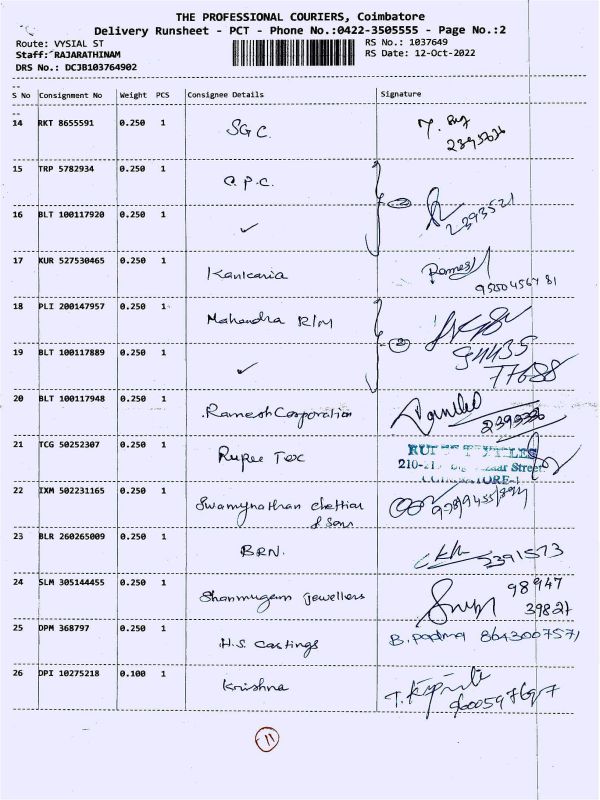 THE PROFESSIONAL COURIERS, Coimbatore
Delivery Runsheet - PCT - Phone No.:0422-3505555 - Page No.:2
Route: VYSIAL ST RS No.: 1037649
Staff: RAJARATHINAM RS Date: 12-Oct-2022
DRS No.: DCJB103764902
S No Consignment No Weight PCS Consignee Details Signature
14 RKT 8655591 0.250 1 SGC.
15 TRP 5782934 0.250 1 C.P.C.
16 BLT 100117920 0.250 1 ✓ 2 2393521
17 KUR 527530465 0.250 1 Kankaria Ramesh
18 PLI 200147957 0.250 1 Mahendra R/M
19 BLT 100117889 0.250 1 ✓ 2 94435
77688
20 BLT 100117948 0.250 1 Ramesh Corporation
21 TCG 50252307 0.250 1 Rupee Tex
22 IXM 502231165 0.250 1 Swamynathan chettiar
& Sons
23 BLR 260265009 0.250 1 BRN. 2391573
24 SLM 305144455 0.250 1 Shanmugam jewellers 98947
39827
25 DPM 368797 0.250 1 H.S. castings B. Padma 8643007571
26 DPI 10275218 0.100 1 Krishna
11